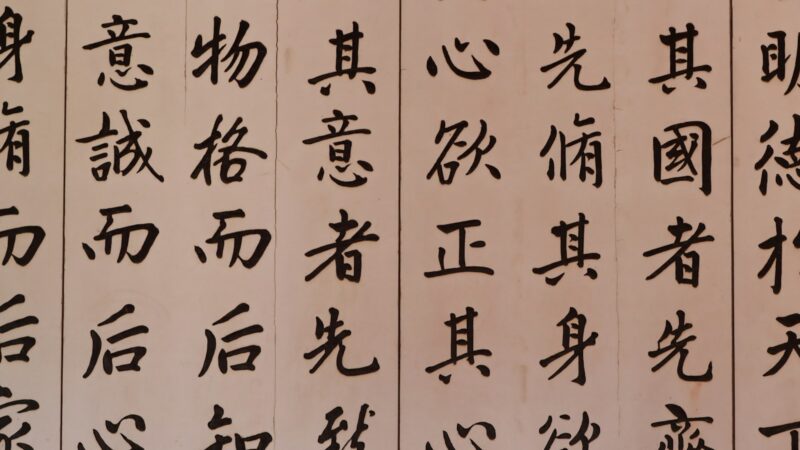 明德於天下
其國者先齊
先脩其身欲
心欲正其心
其意者先致
物格而后知
意誠而后心
身脩而后家